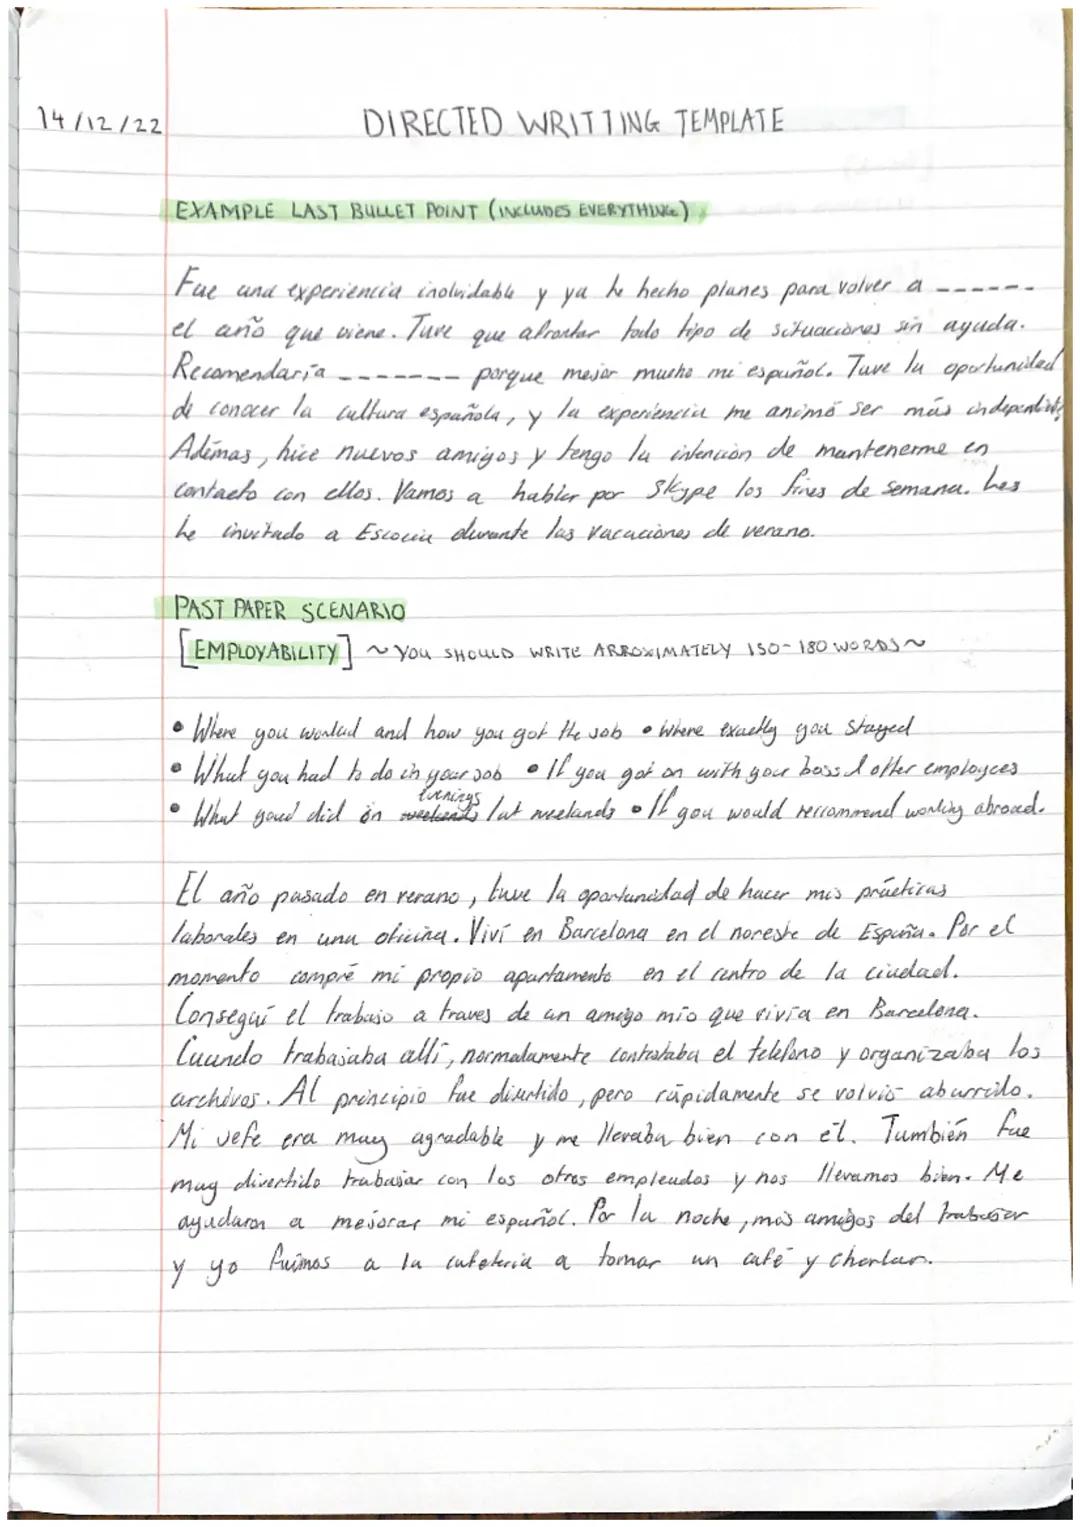 14/12/22
DIRECTED WRITTING TEMPLATE
EXAMPLE LAST BULLET POINT (INCLUDES EVERYTHING)
Fue una experiencia inolvidable y ya he hecho planes para volver a ------
el año que viene. Tuve que afrontar todo tipo de situaciones sin ayuda.
Recomendaría ------- porque mejor mucho mi español. Tuve la oportunidad
de conocer la cultura española, y la experiencia me animó ser más
Ademas, hice nuevos amigos y tengo la intención de mantenerme en
contacto con ellos. Vamos a hablar por Skype los fines de semana. Les
he invitado a Escocia durante las vacaciones de verano.
PAST PAPER SCENARIO
[EMPLOYABILITY] ~ YOU SHOULD WRITE ARROXIMATELY 150-180 WORDS ~
• Where you worked and how you got the job • Where exactly you stayed
• What you had to do in your job • If you got on with your boss & other employees
evenings
• What you did on weekends / at weekends • If you would reccommend working abroad.
El año pasado en verano, tuve la oportunidad de hacer mis prácticas
laborales en una oficina. Viví en Barcelona en el noreste de España. Por el
momento compré mi propio apartamento en el centro de la ciudad.
Conseguí el trabajo a traves de un amigo mío que vivía en Barcelona.
Cuando trabajaba allí, normalamente contestaba el teléfono y organizaba los
archivos. Al principio fue divertido, pero rápidamente se volvió aburrido.
Mi jefe era muy agradable y me llevaba bien con él. También fue
muy divertido trabajar con los otros empleados y nos llevamos bien. Me
ayudaron a mejorar mi español. Por la noche, mis amigos del trabajar
y yo fuimos a la cafeteria a tomar un café y charlar.